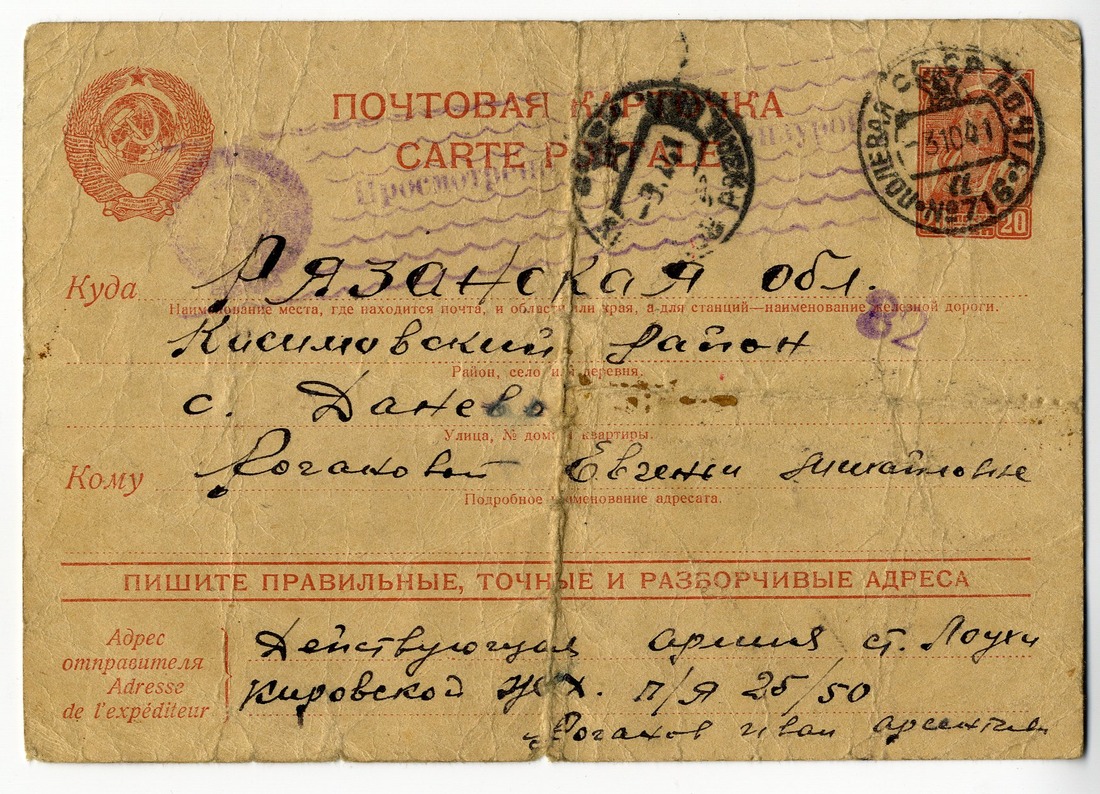 ПОЧТОВАЯ КАРТОЧКА
CARTE POSTALE
Просмотрено
ПОЛЕВАЯ ПОЧТА
31041
№719
20
Куда Рязанская обл.
Наименование места, где находится почта, и области или края, а для станций—наименование железной дороги.
82
Касимовский район
Район, село или деревня.
с. Данево
Улица, № дома и квартиры.
Кому Рогаковой Евгении Михайловне
Подробное наименование адресата.
ПИШИТЕ ПРАВИЛЬНЫЕ, ТОЧНЫЕ И РАЗБОРЧИВЫЕ АДРЕСА
Адрес
отправителя
Adresse
de l'expéditeur
Действующая армия ст. Лоухи
Кировской ж.д. п/я 25/50
Рогаков Иван Арсентьев